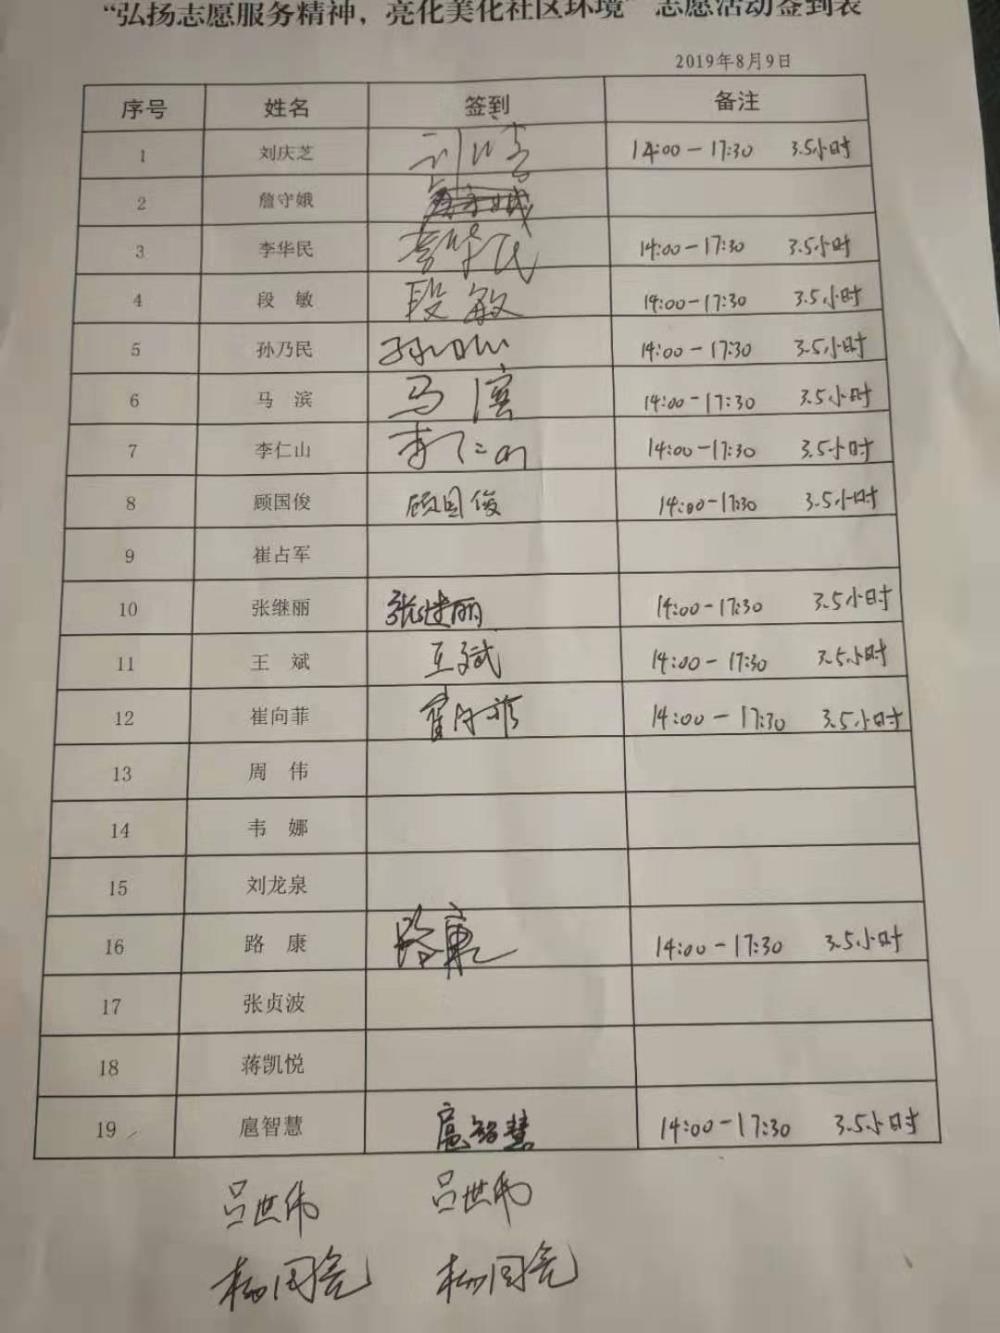 “弘扬志愿服务精神，亮化美化社区环境”志愿活动签到表
2019年8月9日
序号 姓名 签到 备注
1 刘庆芝 14:00-17:30 3.5小时
2 詹守娥
3 李华民 李华民 14:00-17:30 3.5小时
4 段 敏 段敏 14:00-17:30 3.5小时
5 孙乃民 孙乃民 14:00-17:30 3.5小时
6 马 滨 马滨 14:00-17:30 3.5小时
7 李仁山 李仁山 14:00-17:30 3.5小时
8 顾国俊 顾国俊 14:00-17:30 3.5小时
9 崔占军
10 张继丽 张继丽 14:00-17:30 3.5小时
11 王 斌 王斌 14:00-17:30 3.5小时
12 崔向菲 崔向菲 14:00-17:30 3.5小时
13 周 伟
14 韦 娜
15 刘龙泉
16 路 康 路康 14:00-17:30 3.5小时
17 张贞波
18 蒋凯悦
19 扈智慧 扈智慧 14:00-17:30 3.5小时
吕世伟 吕世伟
杨国亮 杨国亮